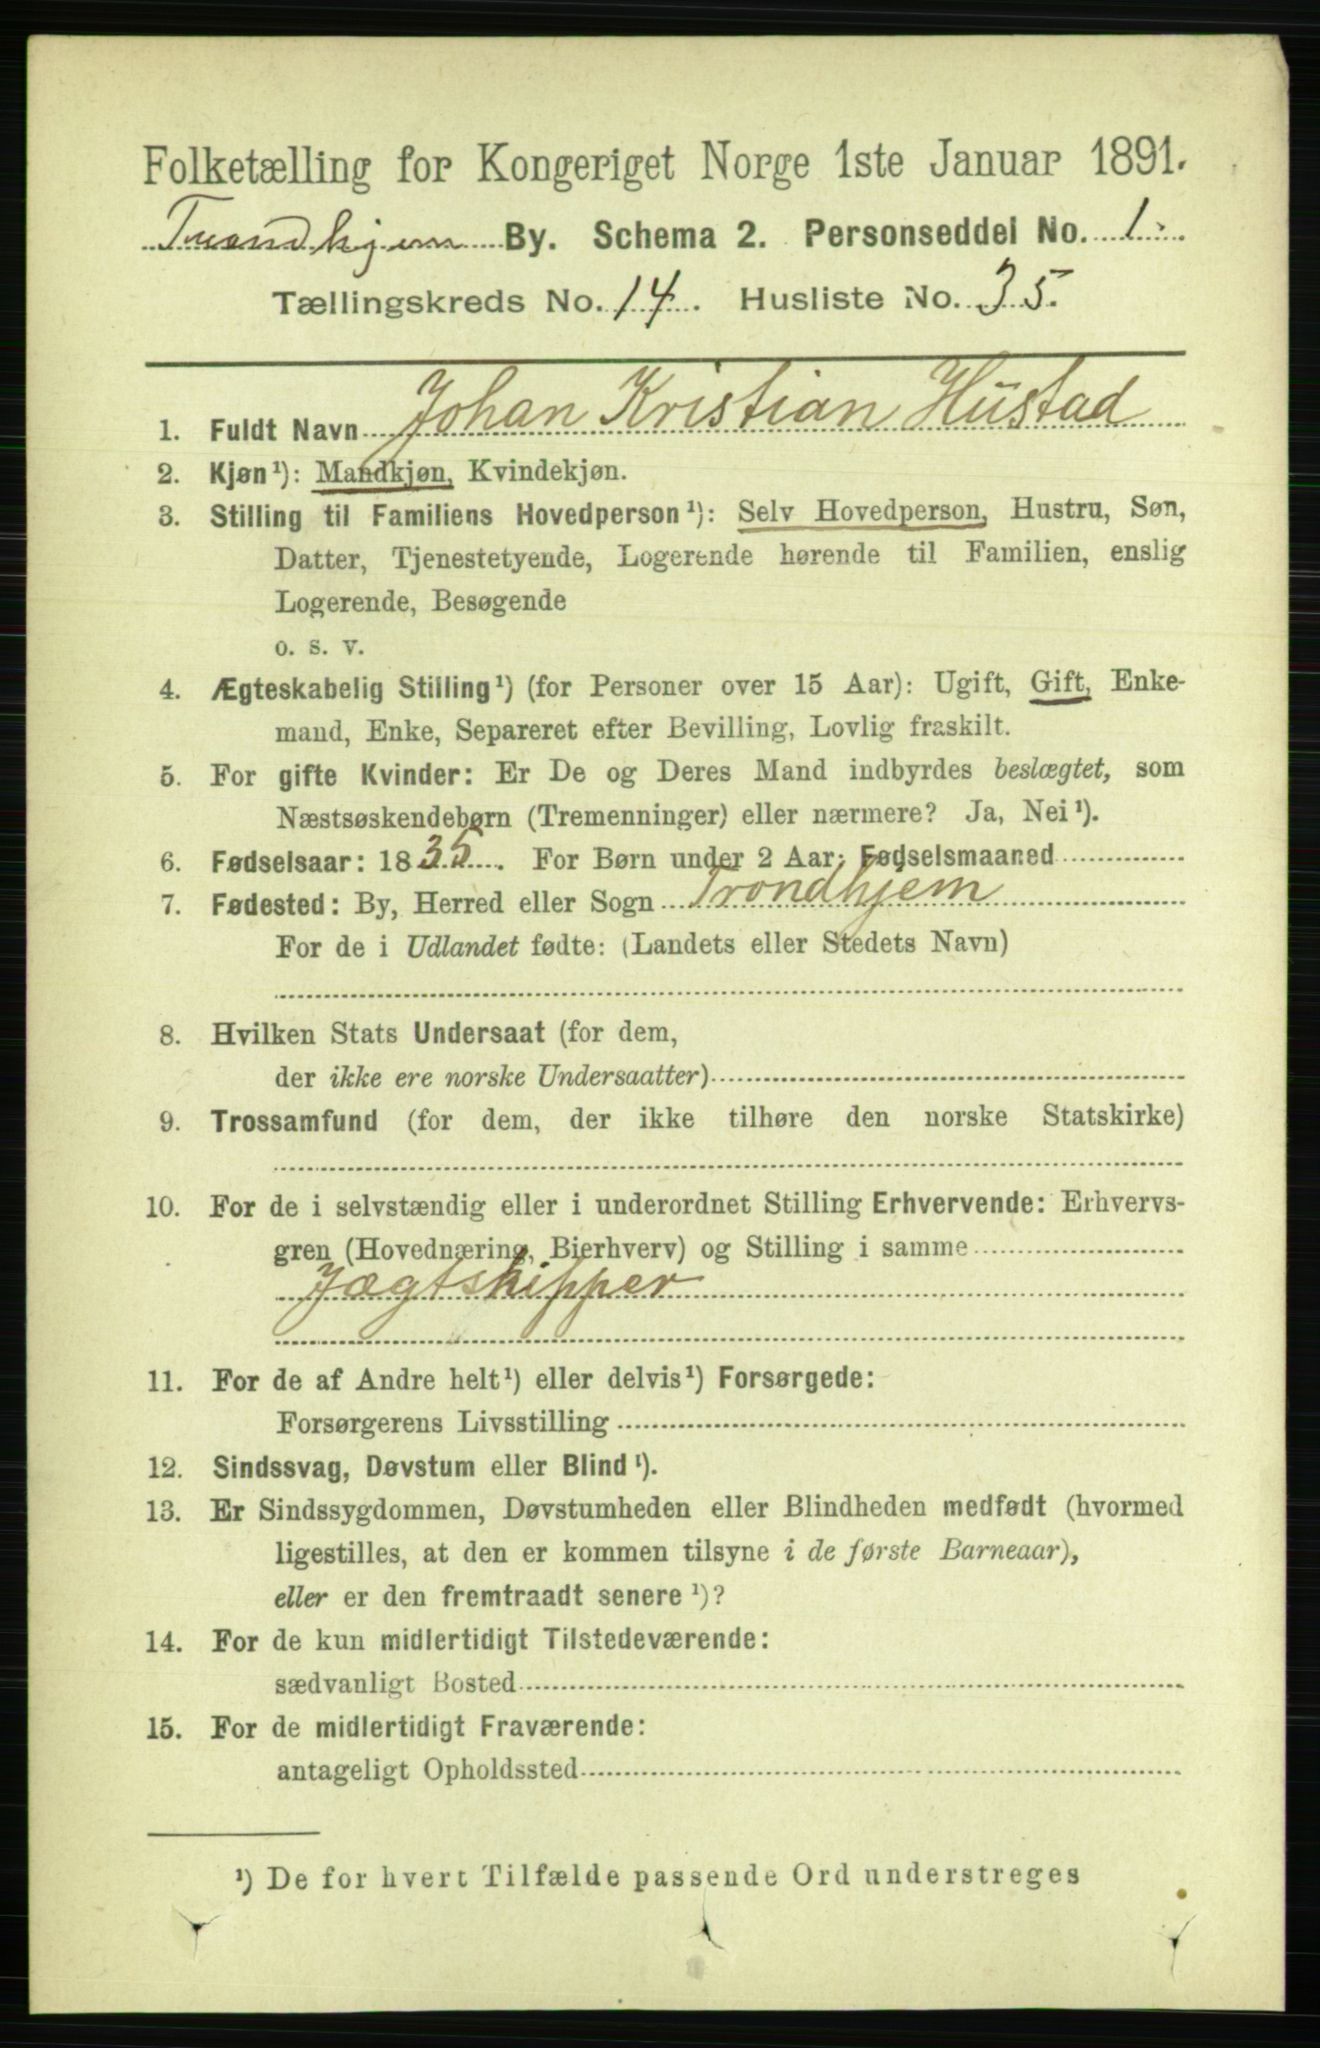 Folketælling for Kongeriget Norge 1ste Januar 1891.
Trondhjem By. Schema 2. Personseddel No. 1.
Tællingskreds No. 14. Husliste No. 35.
1. Fuldt Navn Johan Kristian Hustad
2. Kjøn¹): Mandkjøn, Kvindekjøn.
3. Stilling til Familiens Hovedperson¹): Selv Hovedperson, Hustru, Søn,
Datter, Tjenestetyende, Logerende hørende til Familien, enslig
Logerende, Besøgende
o. s. v.
4. Ægteskabelig Stilling¹) (for Personer over 15 Aar): Ugift, Gift, Enke-
mand, Enke, Separeret efter Bevilling, Lovlig fraskilt.
5. For gifte Kvinder: Er De og Deres Mand indbyrdes beslægtet, som
Næstsøskendebørn (Tremenninger) eller nærmere? Ja, Nei¹).
6. Fødselsaar: 1835. For Børn under 2 Aar: Fødselsmaaned
7. Fødested: By, Herred eller Sogn Trondhjem
For de i Udlandet fødte: (Landets eller Stedets Navn)
8. Hvilken Stats Undersaat (for dem,
der ikke ere norske Undersaatter)
9. Trossamfund (for dem, der ikke tilhøre den norske Statskirke)
10. For de i selvstændig eller i underordnet Stilling Erhvervende: Erhvervs-
gren (Hovednæring, Bierhverv) og Stilling i samme
Jægtskipper
11. For de af Andre helt¹) eller delvis¹) Forsørgede:
Forsørgerens Livsstilling
12. Sindssvag, Døvstum eller Blind¹).
13. Er Sindssygdommen, Døvstumheden eller Blindheden medfødt (hvormed
ligestilles, at den er kommen tilsyne i de første Barneaar),
eller er den fremtraadt senere¹)?
14. For de kun midlertidigt Tilstedeværende:
sædvanligt Bosted
15. For de midlertidigt Fraværende:
antageligt Opholdssted
¹) De for hvert Tilfælde passende Ord understreges